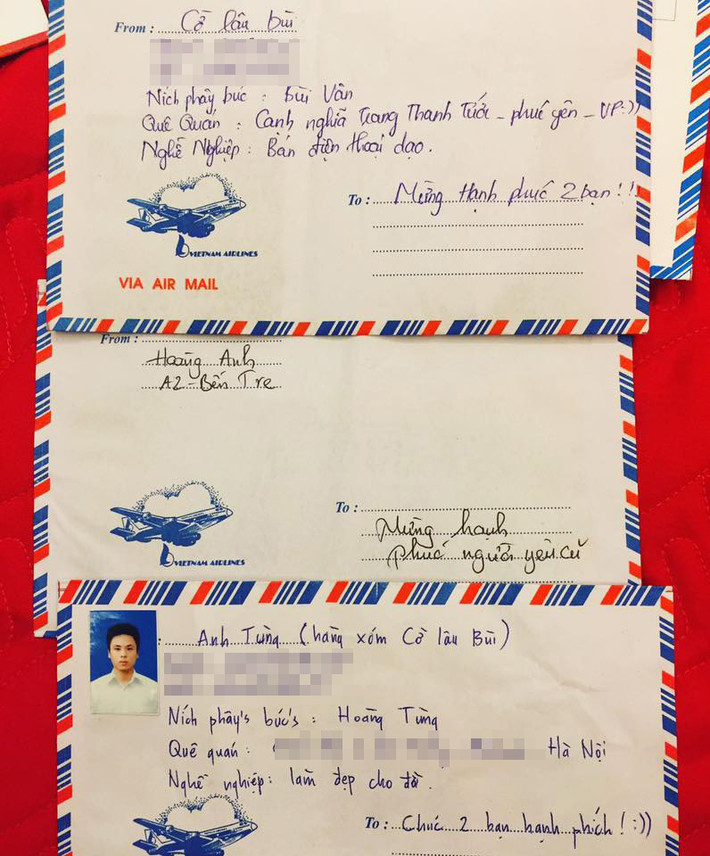 From : Cô lâu bùi
Ních phây búc : Bùi Vân
Quê Quán : Cạnh nghĩa Trang Thanh Tước - phúc yên - VP:))
Nghề Nghiệp : Bán điện thoại dạo.
To : Mừng Hạnh phúc 2 bạn!!
VIETNAM AIRLINES
VIA AIR MAIL
From :
Hoàng Anh
A2 - Bến Tre
To :
Mừng hạnh
phúc người yêu cũ
VIETNAM AIRLINES
: Anh Tùng (hàng xóm Cô lâu Bùi)
Ních phây's búc's : Hoàng Tùng
Quê quán : Hà Nội
Nghề nghiệp : làm đẹp cho đời.
To : Chúc 2 bạn hạnh phích ! :))